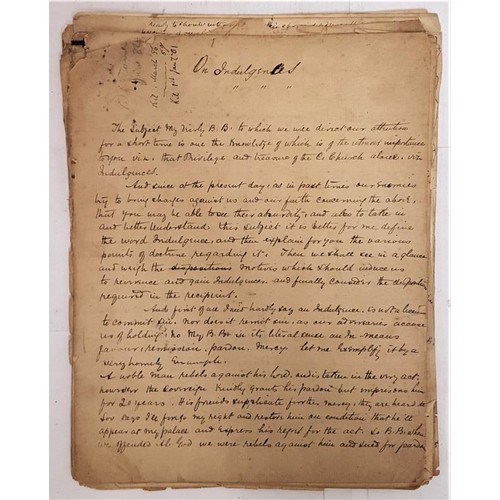 1
On Indulgences
" " "
The Subject My Dearly B. B. to which we will direct our attention
for a short time is one the Knowledge of which is of the utmost importance
to you viz. that Privilege and treasure of the C. Church alone, viz
Indulgences.
And since at the present day, as in past times our Enemies
try to bring charges against us and our faith concerning the above,
that you may be able to see their absurdity, and also to take in
and better understand this subject it is better for me define
the word Indulgence, and then explain for you the various
points of doctrine regarding it. Then we shall see in a glance
and weigh the motives which should induce us
to reverence and gain Indulgences and finally consider the disposition
required in the recipient.
And first of all I need hardly say an Indulgence is not a licence
to commit sin. nor does it remit sin, as our adversaries accuse
us of holding; no My B. B in its literal sense an In. means
favour, remission, pardon, mercy. let me Exemplify it by a
very homely Example.
A noble man rebels against his lord, and is taken in the very act.
however the Sovereign Kindly grants his pardon but imprisons him
for 20 years. His friends supplicate for their mercy, they are heard the
Sov says I'll forego my right and restore him on condition that he'll
appear at my palace and Express his regret for the act. So B. B when
we offended Al. God we were rebels against him and sued for pardon